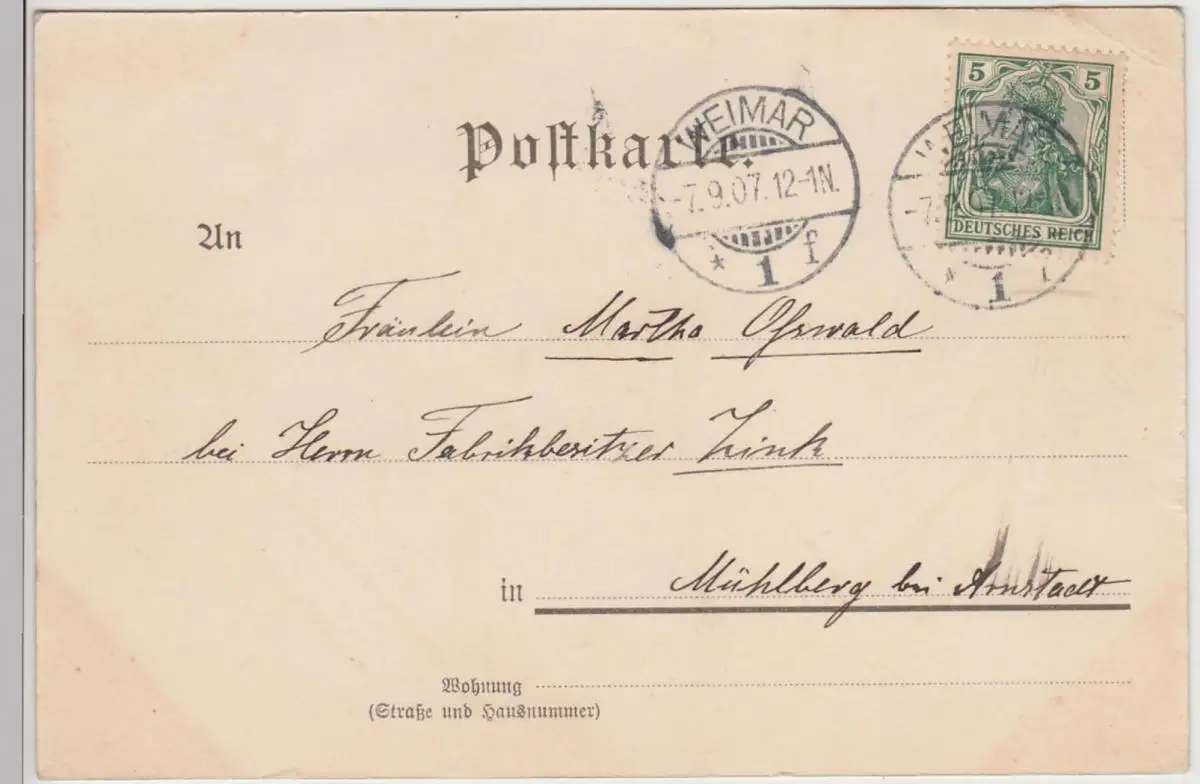 Postkarte.
WEIMAR
-7.9.07.12-1N.
* 1 f
5 5
DEUTSCHES REICH
WEIMAR
-7.9.07.12
* 1 f
An
Fräulein Martha Oßwald
bei Herrn Fabrikbesitzer Zink
in Mühlberg bei Arnstadt
Wohnung
(Straße und Hausnummer)